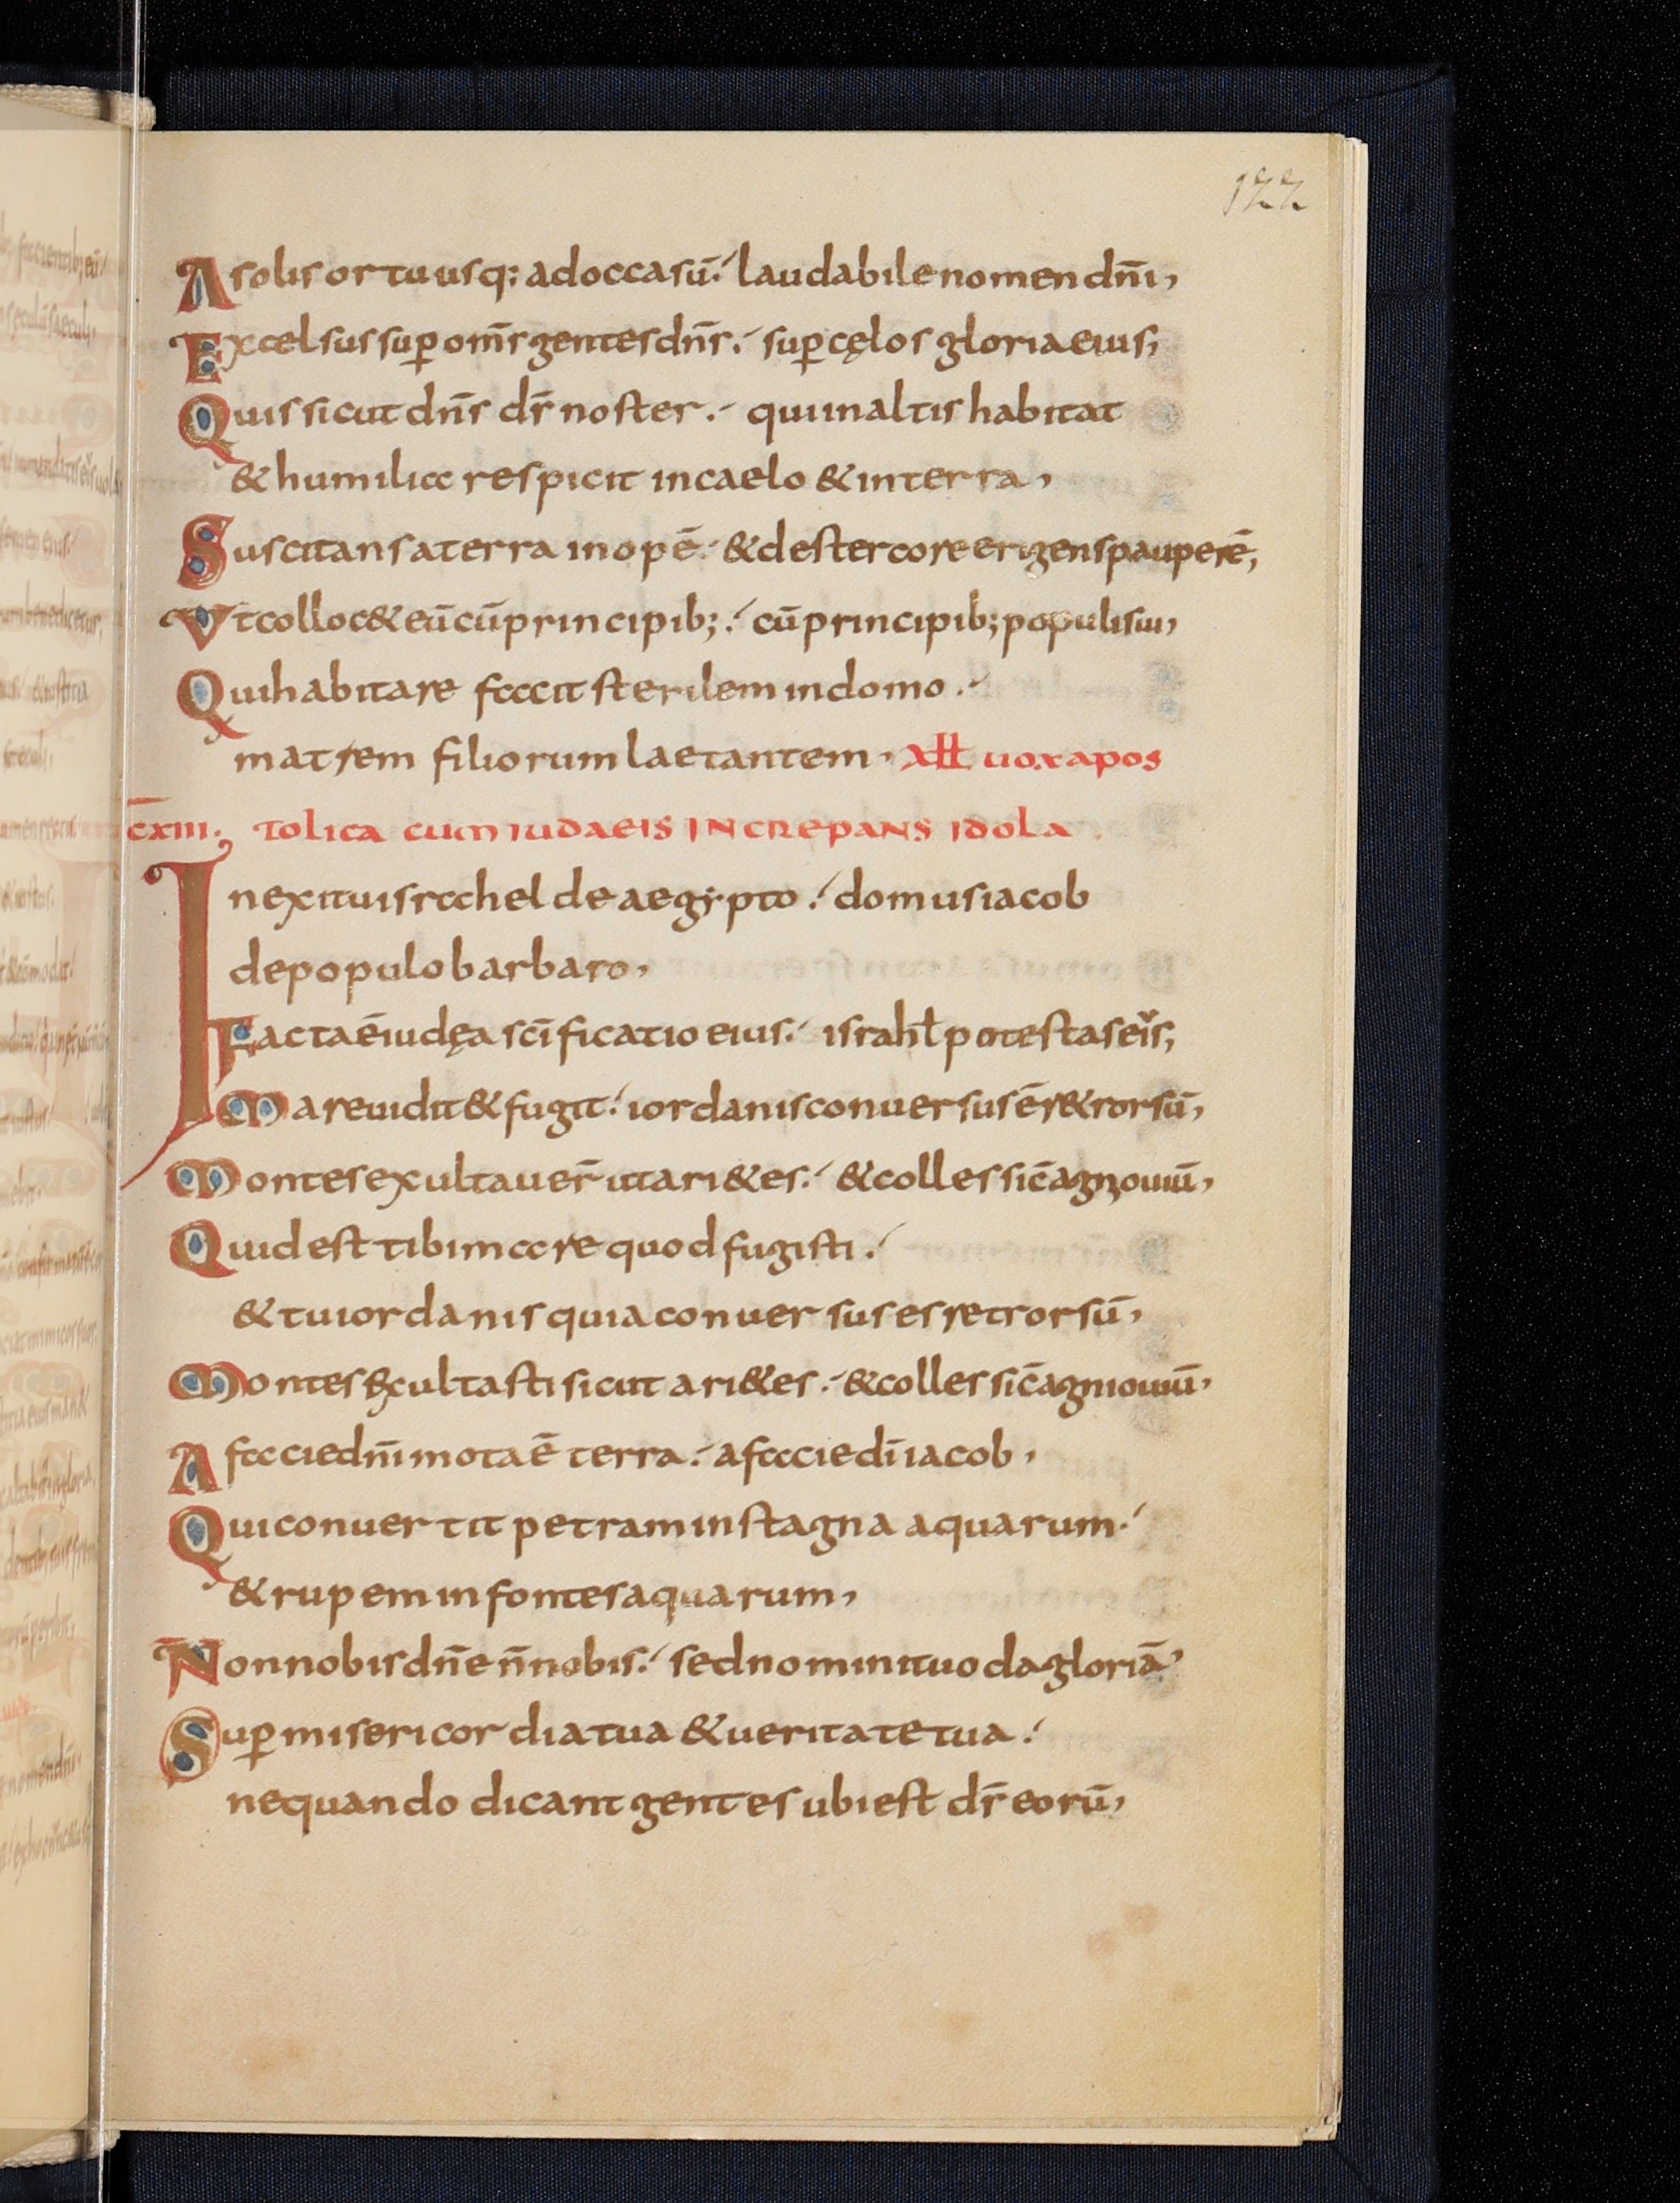 122
A solis ortu usq: ad occasū. laudabile nomen dn̄i,
Excelsus sup̄ om̄s gentes dn̄s. sup̄ cęlos gloria eius;
Quis sicut dn̄s ds̄ noster. qui in altis habitat
& humilia respicit in caelo & in terra,
Suscitans a terra inopē. & de stercore erigens pauperē,
Vt colloc& eū cū principib; cū principib; populi sui,
Qui habitare facit sterilem in domo.
matrem filiorum laetantem, All uox apos
cxiii. tolica cum iudaeis increpans idola.
In exitu israhel de aegypto. domus iacob
de populo barbaro,
Facta ē iudęa sc̄ificatio eius. israhl potestas eis,
Mare uidit & fugit. iordanis conuersus ē r&rorsū,
Montes exultauer̄ ut ari&es. & colles sic̄ agni ouiū,
Quid est tibi mare quod fugisti.
& tu iordanis quia conuersus es retrorsū,
Montes exultasti sicut ari&es. & colles sic̄ agni ouiū,
A facie dn̄i mota ē terra. a facie dī iacob,
Qui conuertit petram in stagna aquarum.
& rupem in fontes aquarum,
Non nobis dn̄e n̄ nobis. sed nomini tuo da gloriā,
Sup̄ misericordia tua & ueritate tua.
nequando dicant gentes ubi est ds̄ eorū,